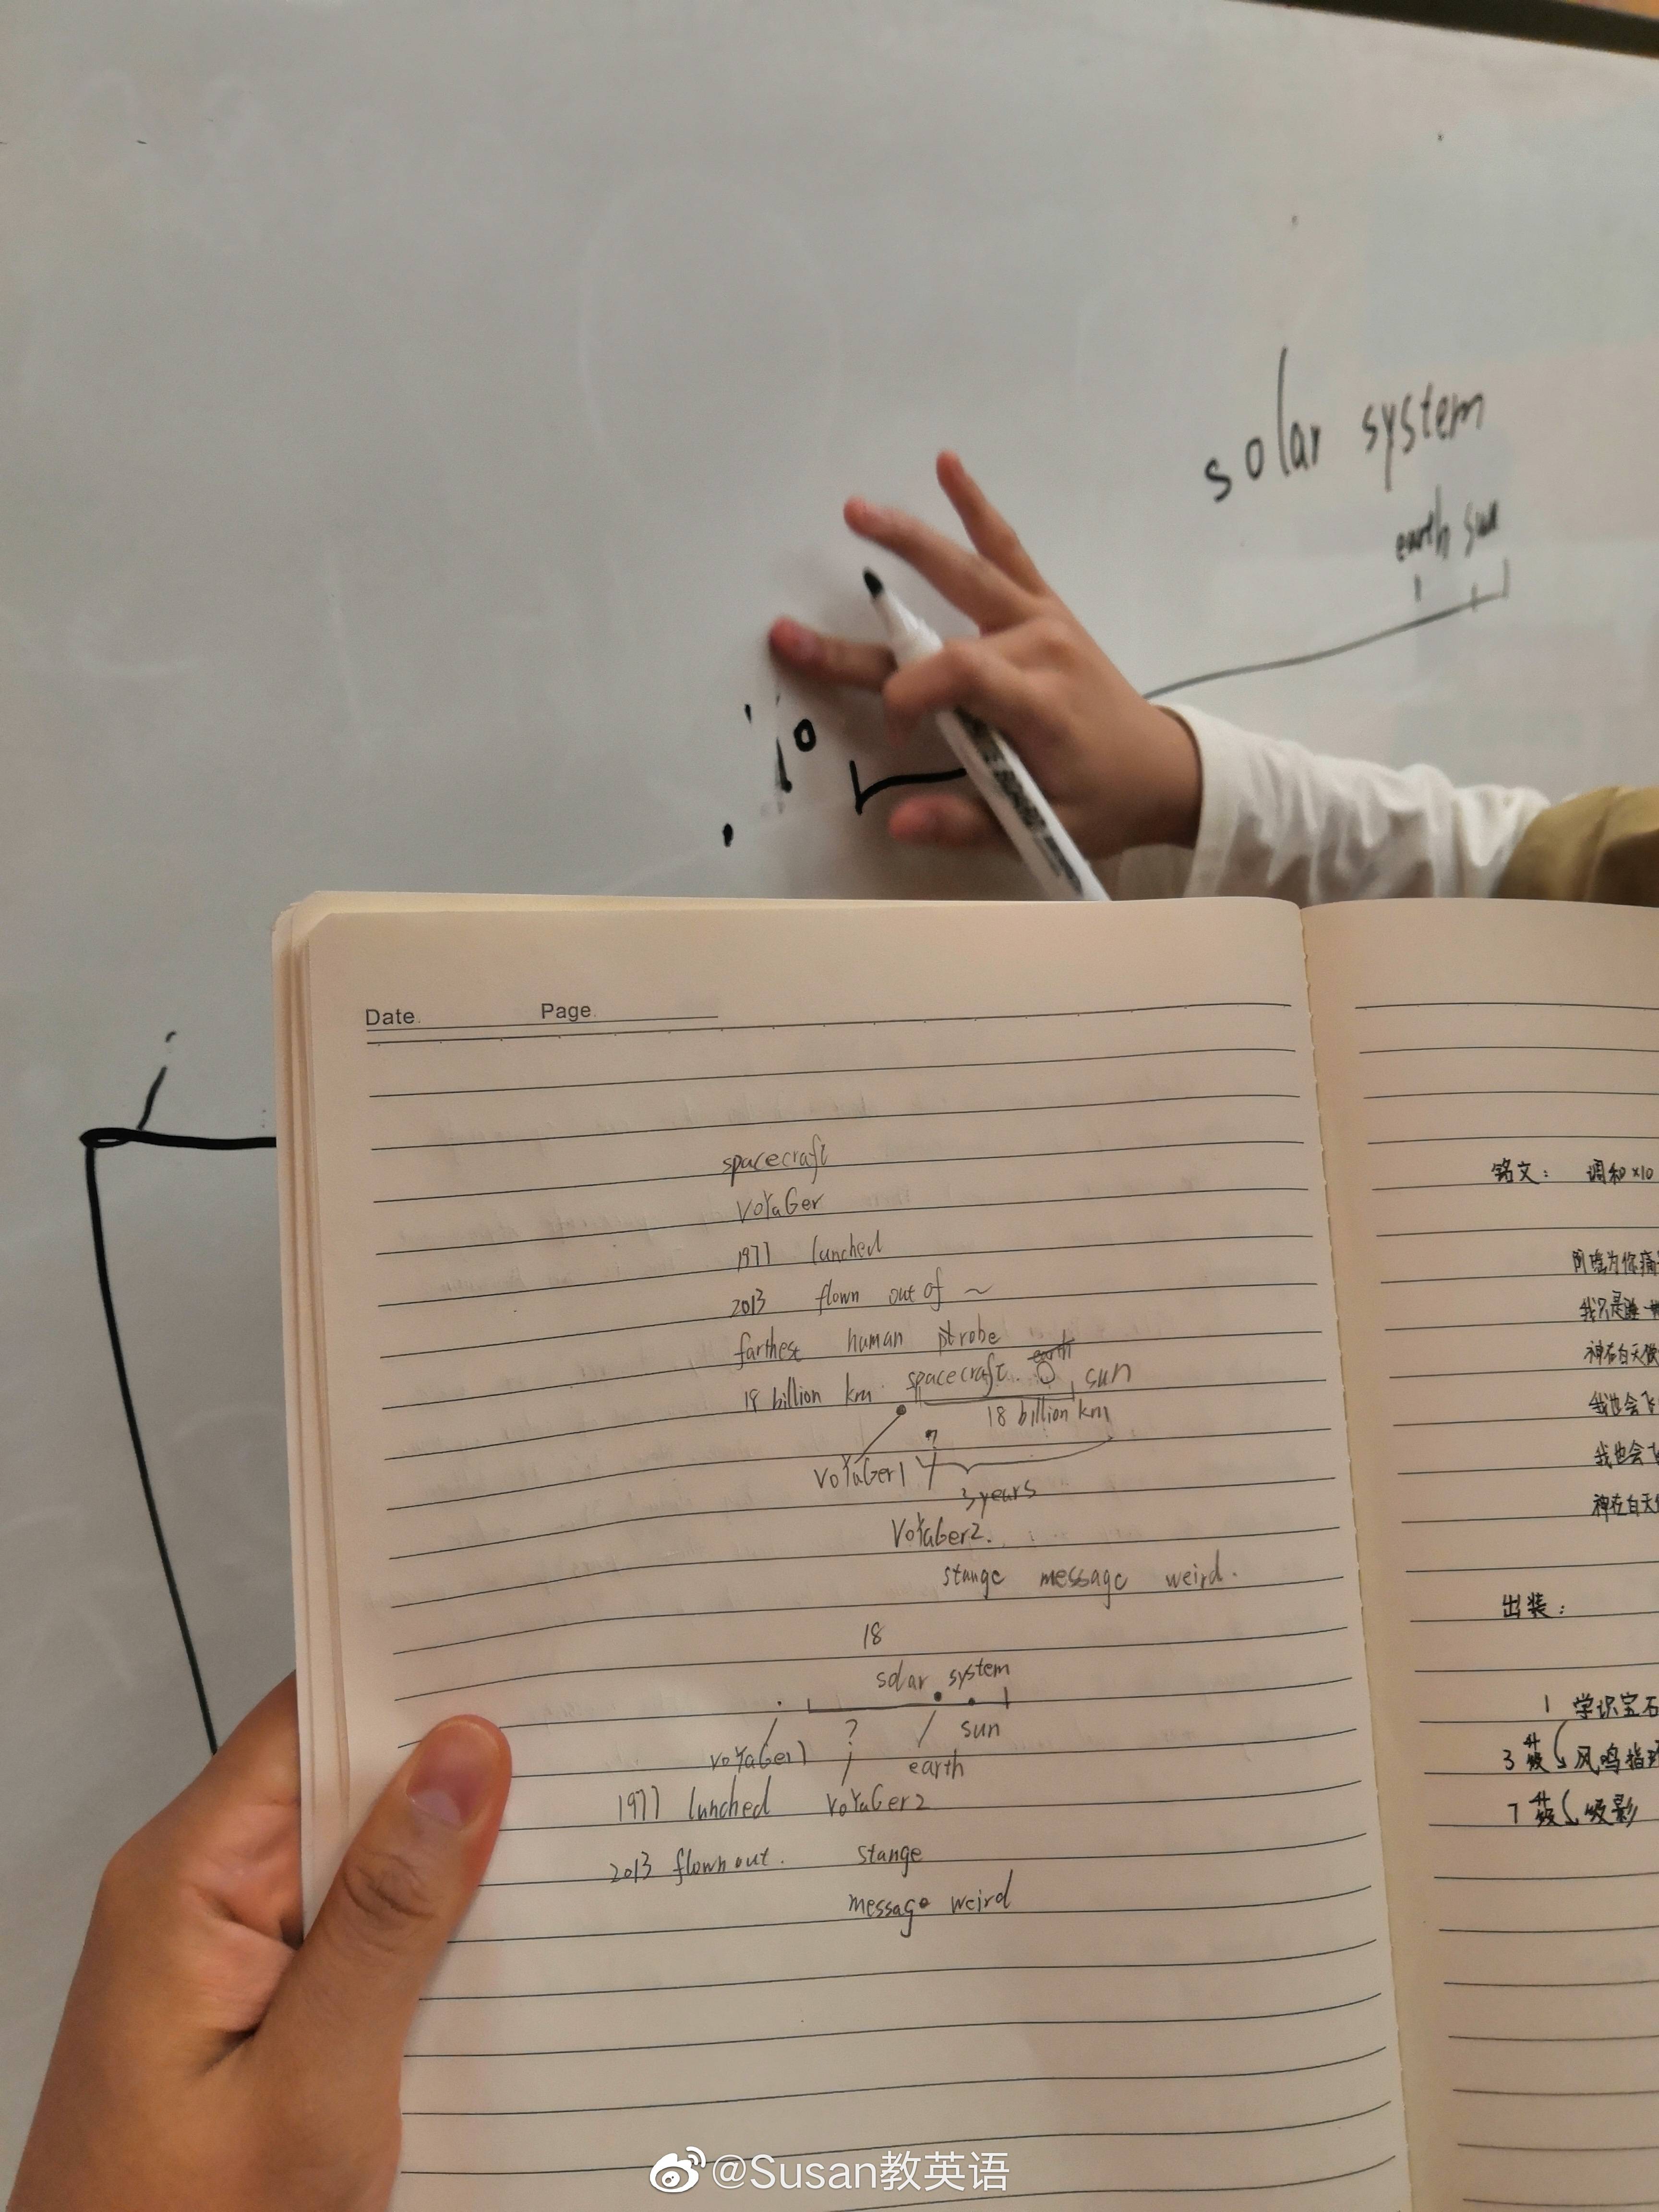 solar system
earth sun
Date. Page.
spacecraft
VoYaGer
1977 lunched
2013 flown out of ~
farthest human ptrobe
earth
18 billion km. spacecraft. sun
18 billion km
?
VoYaGer1
3 years
VoYaGer2.
stange message weird.
18
solar system
? sun
VoYaGer1 earth
1977 lunched VoYaGer2
2013 flown out. stange
message weird
铭文: 调和×10
我只是
神在白天
我也会飞
我也会
神在白天
出装:
1 学识宝石
3 升级 风鸣指环
7 升级
@Susan教英语